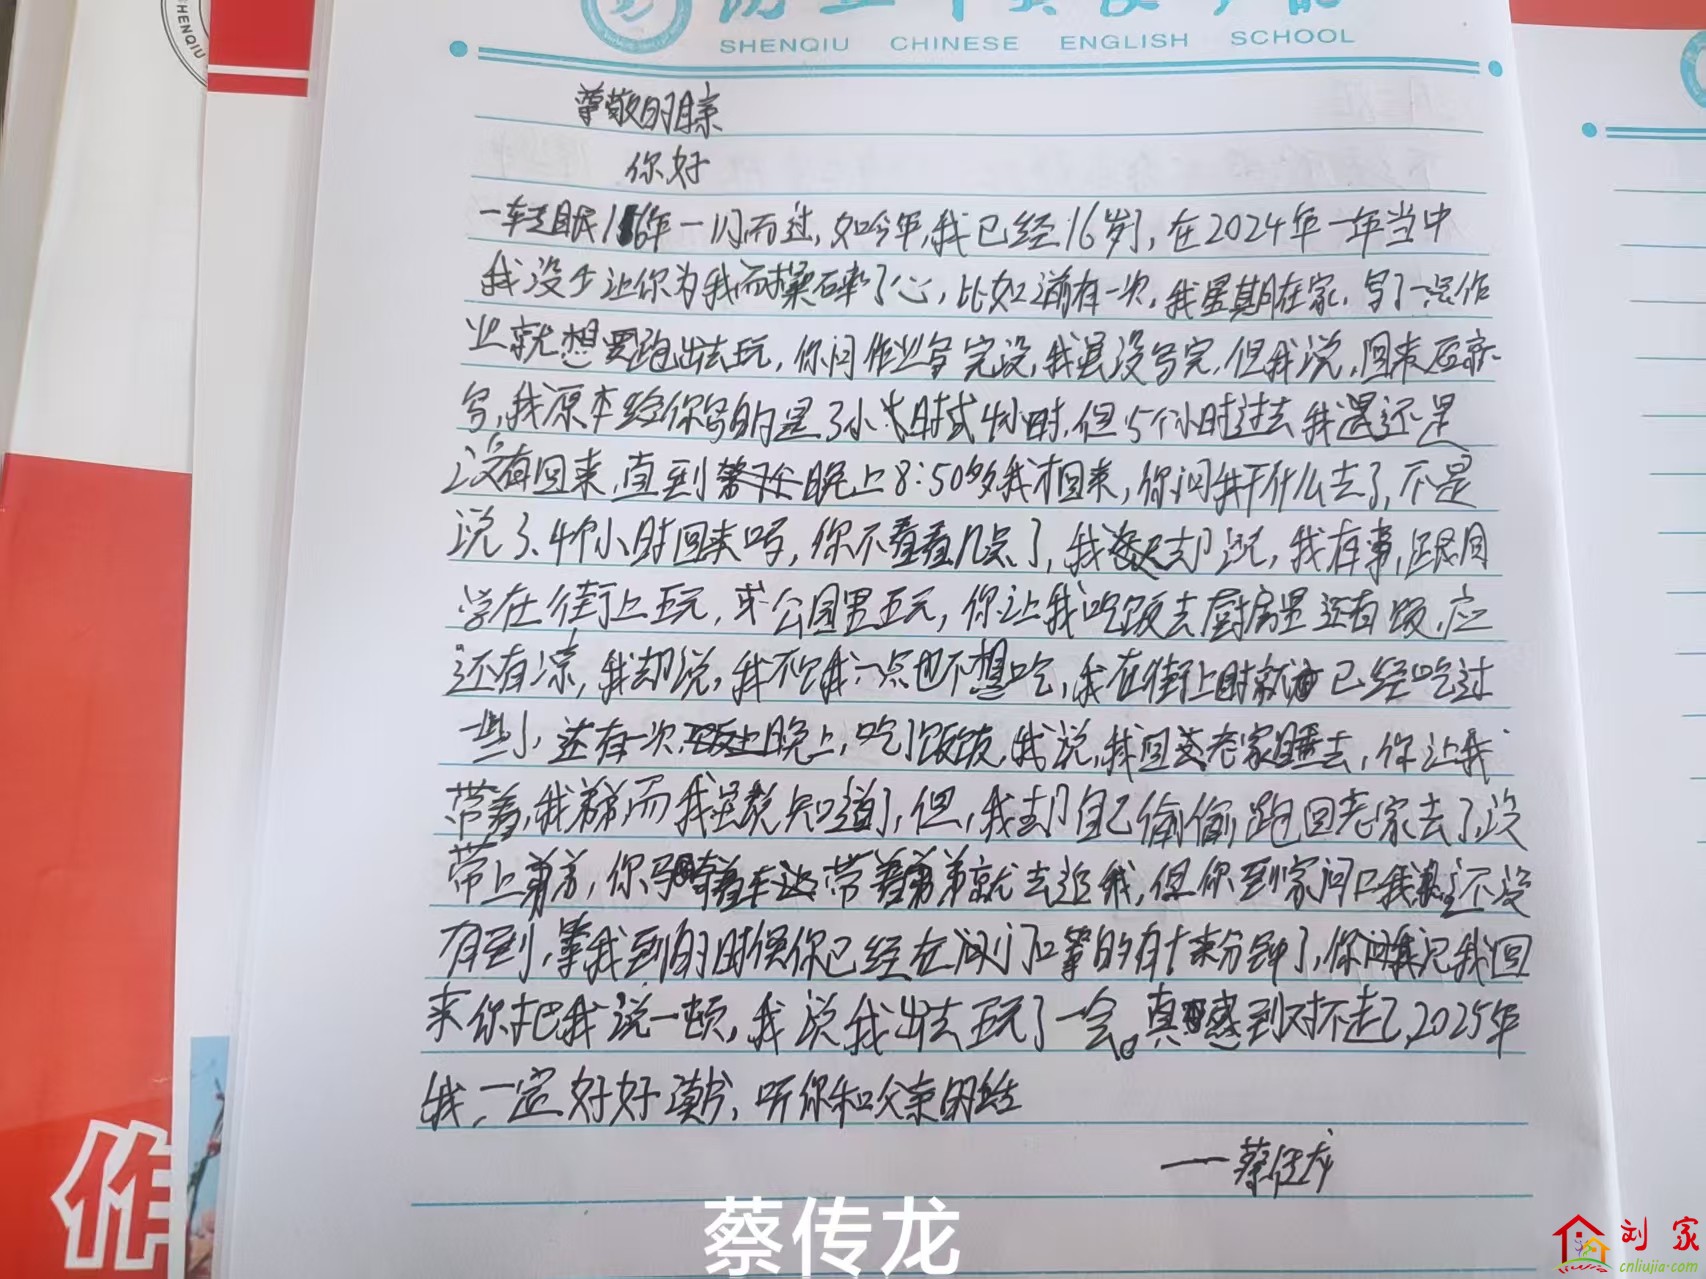 SHENQIU CHINESE ENGLISH SCHOOL
尊敬的母亲
你好
一转眼16年一闪而过,如今年,我已经16岁了,在2024年一年当中
我没少让你为我而操碎了心,比如之前有一次,我星期在家,写了一点作
业就想要跑出去玩,你问作业写完没,我虽没写完,但我说,回来在
写,我原本给你写的是3小时或4小时,但5个小时过去我还是
没有回来,直到晚上8:50多我才回来,你问我干什么去了,不是
说3、4个小时回来吗,你不看看几点了,我却说,我有事,跟同
学在街上玩,或公园里玩,你让我吃饭去厨房里还有饭,应
还有凉,我却说,我不饿我一点也不想吃,我在街上时就已经吃过
一些了,还有一次,晚上,吃了饭后,我说,我回老家睡去,你让我
带着,我弟而我虽说知道了,但,我却自己偷偷跑回老家去了,没
带上弟弟,你骑着车带着弟弟就去追我,但你到家门口我还没
有到,等我到的时候你已经在门口等的有十来分钟了,你问我
来你把我说一顿,我说我出去玩了一会。真感到对不起,2025年
我,一定好好读书,听你和父亲的话
——蔡传龙
蔡传龙
作
SHENQIU
刘家
cnliujia.com